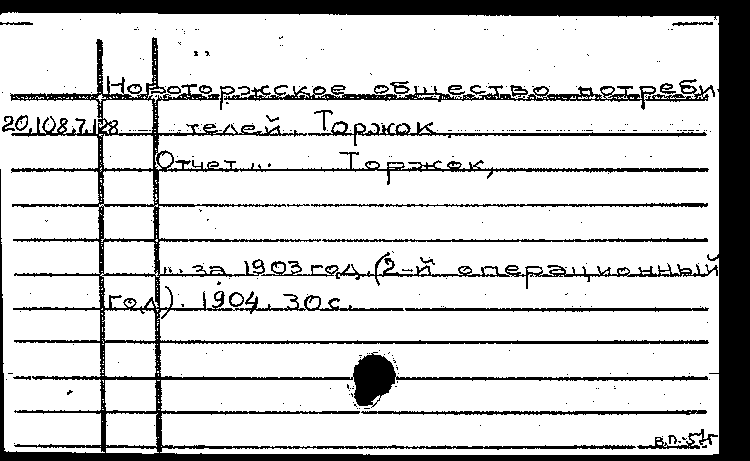 Новоторжское общество потреби-
20.108.7.128 телей. Торжок.
Отчет... Торжок,
... за 1903 год. (2-й операционный
год). 1904. 30 с.